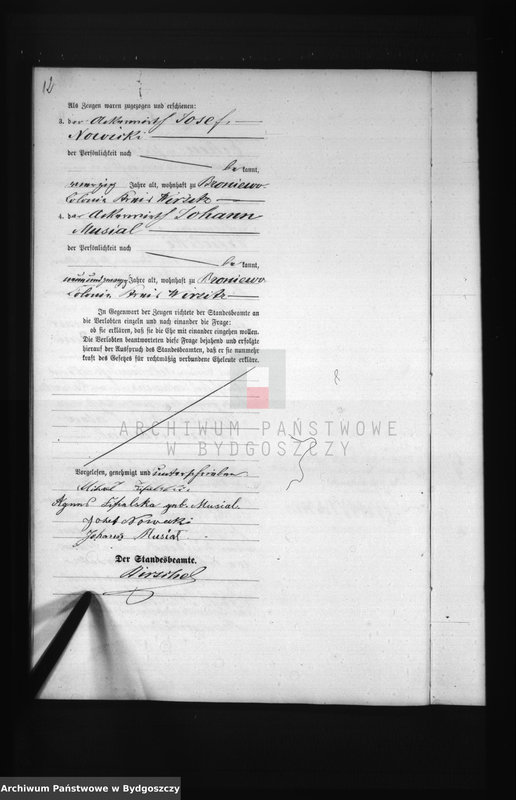 12
Als Zeugen waren zugezogen und erschienen:
3. der Ackerwirth Josef
Nowicki
der Persönlichkeit nach
be kannt,
vierzig Jahre alt, wohnhaft zu Broniewo
Colonie Kreis Wirsitz
4. der Ackerwirth Johann
Musial
der Persönlichkeit nach
be kannt,
Jahre alt, wohnhaft zu Broniewo
Colonie Kreis Wirsitz
In Gegenwart der Zeugen richtete der Standesbeamte an
die Verlobten einzeln und nach einander die Frage:
ob sie erklären, daß sie die Ehe mit einander eingehen wollen.
Die Verlobten beantworteten diese Frage bejahend und erfolgte
hierauf der Ausspruch des Standesbeamten, daß er sie nunmehr
kraft des Gesetzes für rechtmäßig verbundene Eheleute erkläre.
ARCHIWUM PAŃSTWOWE
W BYDGOSZCZY
Vorgelesen, genehmigt und unterschrieben
Agnes geb. Musial
Josef Nowicki
Johann Musial
Der Standesbeamte.
Hirschel
Archiwum Państwowe w Bydgoszczy